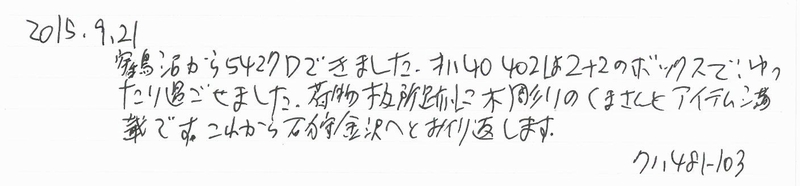 2015.9.21
宝鳥沼から5427Dできました。キハ40 402は2+2のボックスで、ゆっ
たり過ごせました。荷物扱所跡に木彫りのくまさんとアイテム満
載です。これから石狩金沢へとおり返します。
クハ481-103